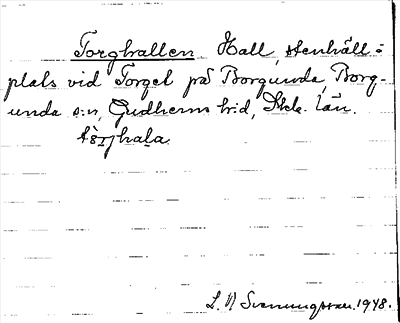 Torghallen. Hall, stenhäll=
plats vid Torget på Borgunda, Borg-
unda s:n, Gudhems h:d, Skb. län.
L. N. Svenungsson. 1948.